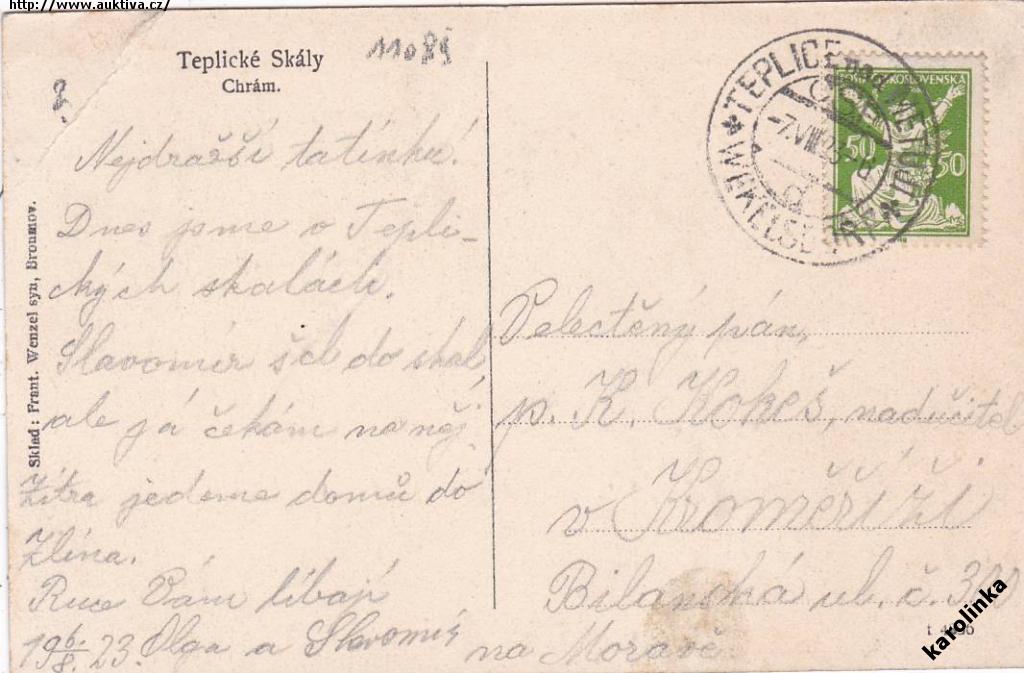 http://www.auktiva.cz/
Teplické Skály
Chrám.
11085
Sklad: Frant. Wenzel syn, Broumov.
Nejdražší tatínku!
Dnes jsme v Tepli-
ckých skalách.
Slavomír šel do skal
ale já čekám na něj.
Zítra jedeme domů do
Zlína.
Ruce Vám líbají
19 6/8. 23. Olga a Slavomír
TEPLICE nad METUJÍ
WEKELSDORF
-7.VIII.23-8
POŠTA ČESKOSLOVENSKÁ
50 50
Velectěný pán,
p. K. Kokeš, nadučitel
v Kroměříži
Bilanská ul. č. 300
na Moravě
karolinka